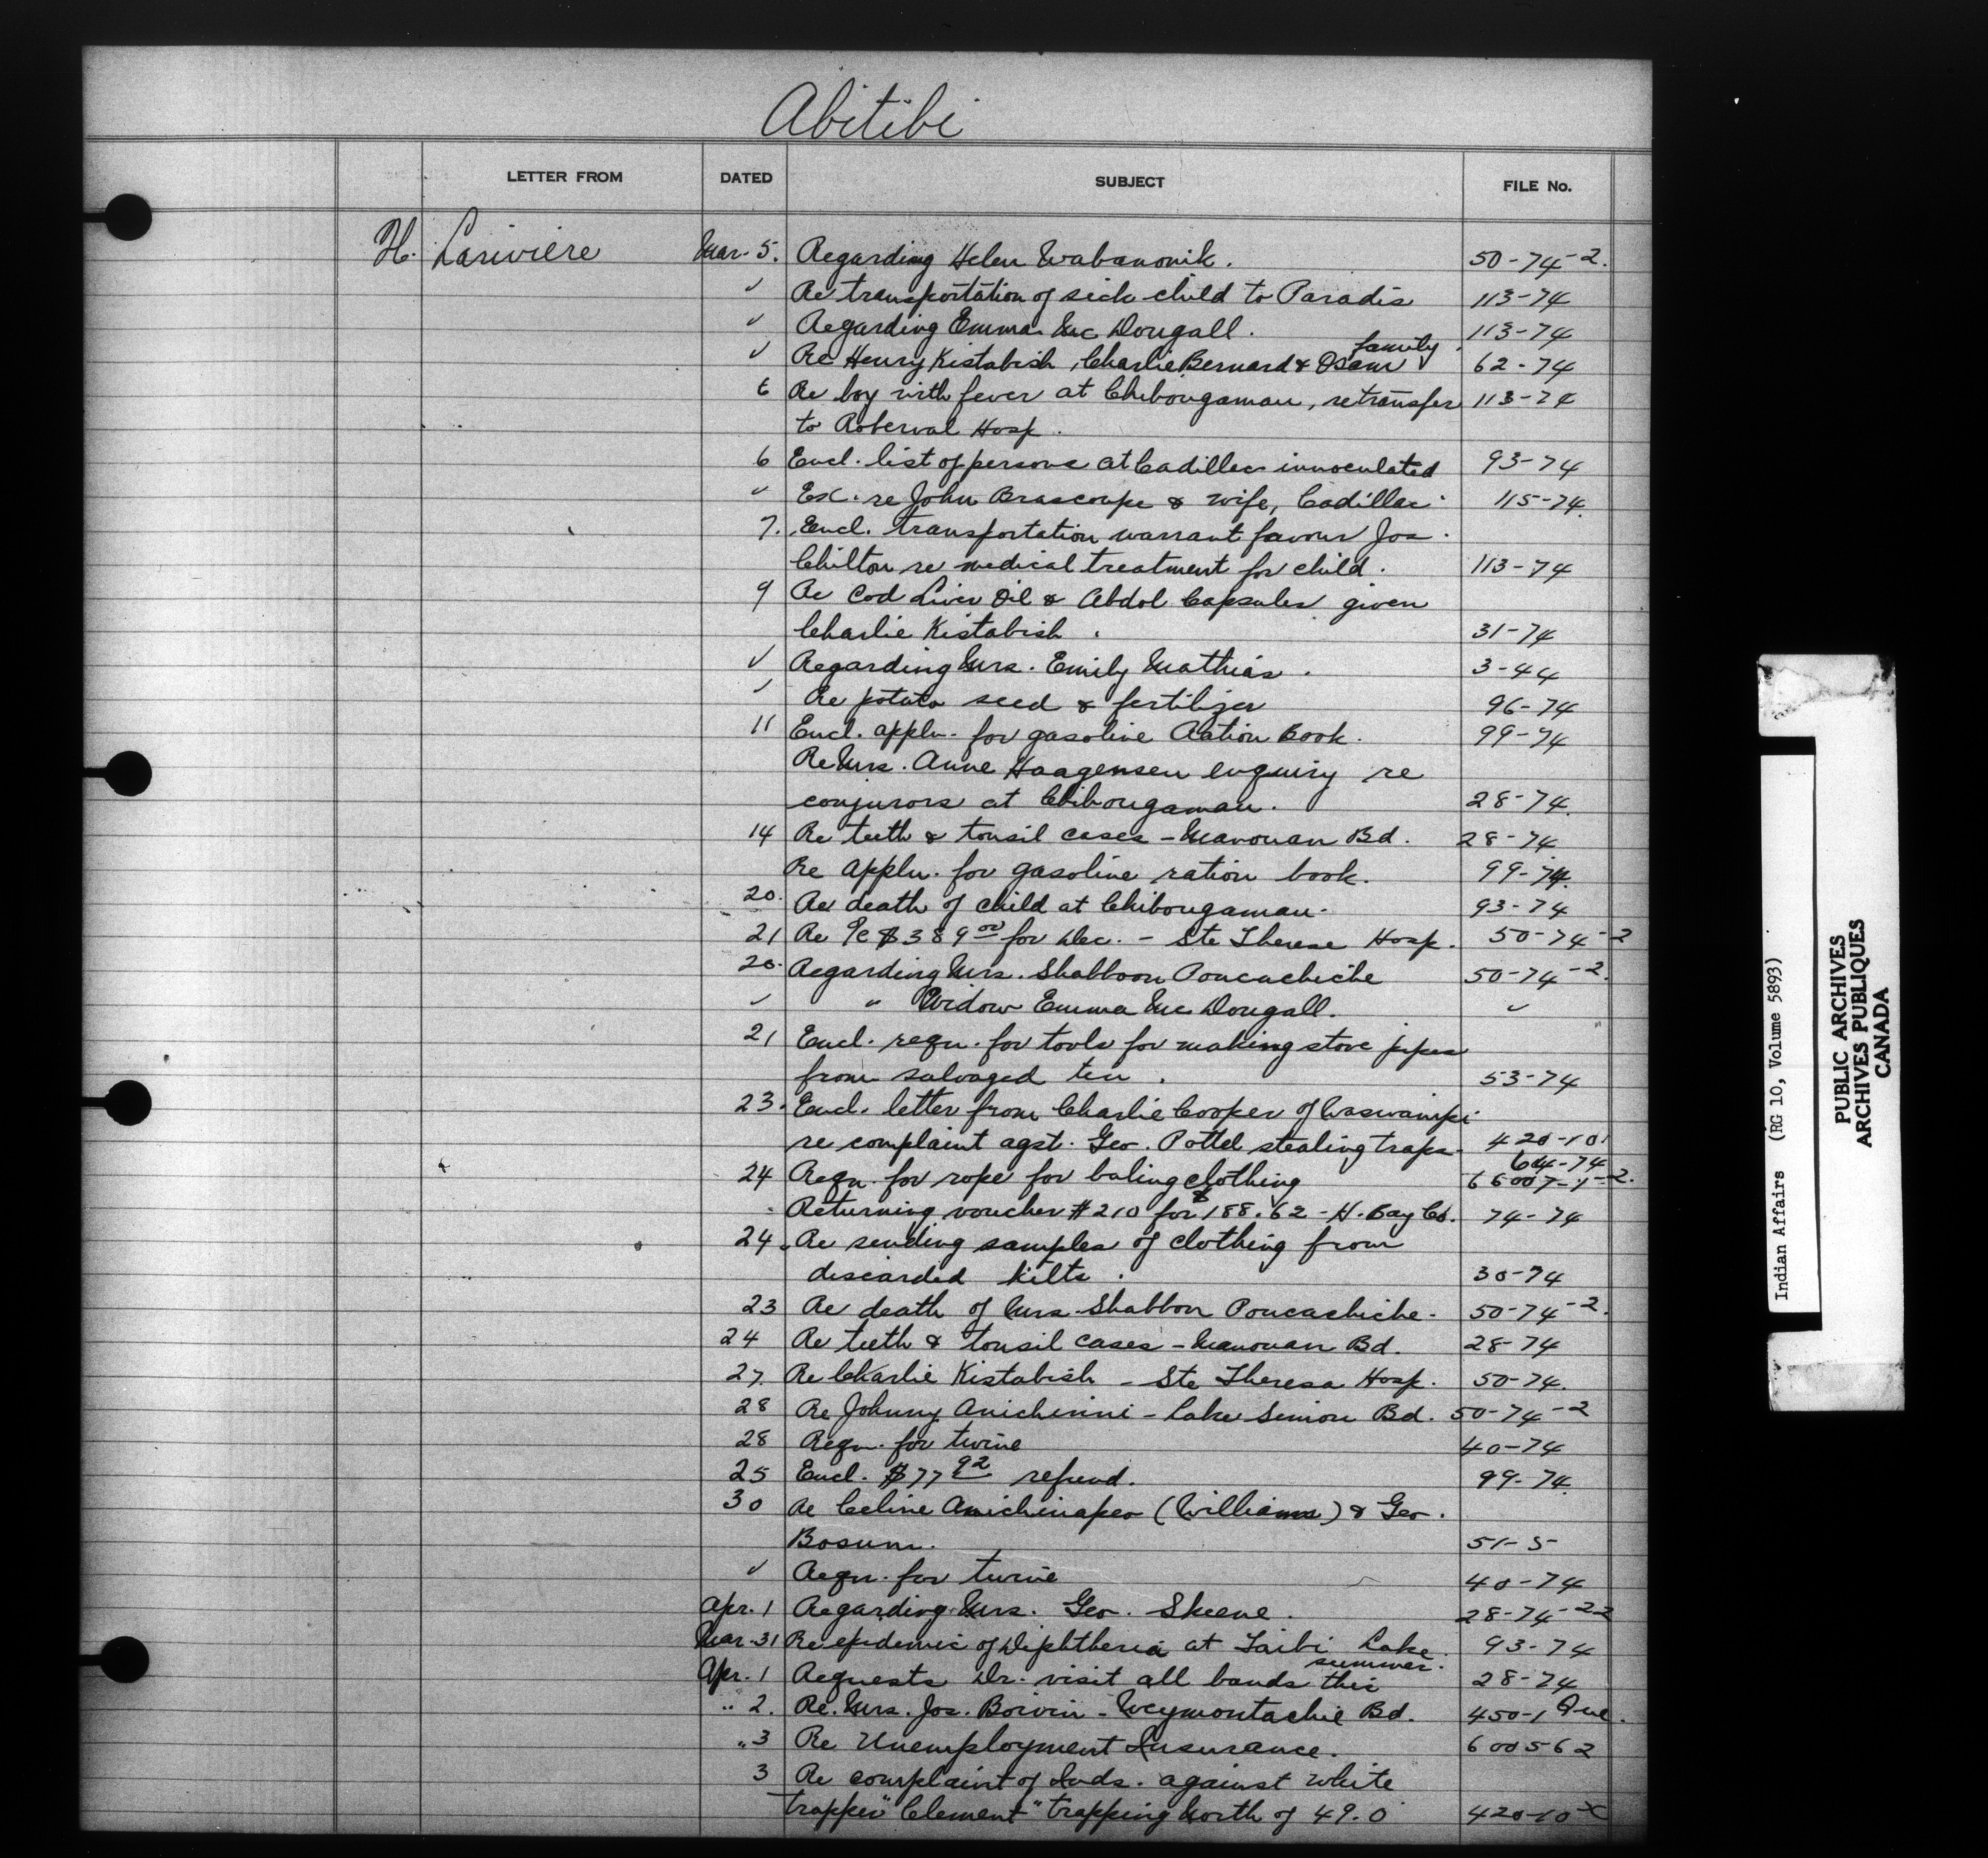 Abitibi
LETTER FROM DATED SUBJECT FILE No.
H. Lariviere Mar. 5. Regarding Helen Wabanonik. 50-74-2.
" Re transportation of sick child to Paradis 113-74
" Regarding Emma Mc Dougall. 113-74
family
" Re Henry Kistabish, Charlie Bernard & Osam 62-74
6 Re boy with fever at Chibougamau, re transfer 113-74
to Roberval Hosp.
6 Encl. list of persons at Cadillac innoculated 93-74
" Exc. re John Brascoupe & wife, Cadillac 115-74.
7. Encl. transportation warrant favour Jos.
Chilton re medical treatment for child. 113-74
9 Re Cod Liver Oil & Abdol Capsules given
Charlie Kistabish. 31-74
" Regarding Mrs. Emily Mathias. 3-44
" Re potato seed & fertilizer 96-74
11 Encl. appln. for gasoline Ration Book. 99-74
Re Mrs. Anne Haagensen enquiry re
conjurors at Chibougamau. 28-74.
14 Re teeth & tonsil cases - Manouan Bd. 28-74
Re appln. for gasoline ration book. 99-74.
20. Re death of child at Chibougamau. 93-74
21 Re a/c $389.00 for Dec. - Ste Therese Hosp. 50-74-2
20. Regarding Mrs. Shabbon Poucachiche 50-74-2.
" " Widow Emma Mc Dougall. "
21 Encl. reqn. for tools for making stove pipes
from salvaged tin. 53-74
23. Encl. letter from Charlie Cooper of Waswanipi
re complaint agst. Geo. Pottel stealing traps. 420-10
64-74
24 Reqn. for rope for baling clothing 66007-1-2.
Returning voucher #210 for $188.62 - H. Bay Co. 74-74
24. Re sending samples of clothing from
discarded kilts. 30-74
23 Re death of Mrs. Shabbon Poucachiche. 50-74-2.
24 Re teeth & tonsil cases - Manouan Bd. 28-74
27. Re Charlie Kistabish - Ste Theresa Hosp. 50-74.
28 Re Johnny Anichinni - Lake Simon Bd. 50-74-2
28 Reqn. for twine 40-74
25 Encl. $77.92 refund. 99-74.
30 Re Celine Anichinapeo (Williams) & Geo.
Bosum. 51-5
" Reqn. for twine 40-74
Apr. 1 Regarding Mrs. Geo. Skeene. 28-74-22
Mar. 31 Re epidemic of Diphtheria at Taibi Lake. 93-74
summer.
Apr. 1 Requests Dr. visit all bands this 28-74
" 2. Re. Mrs. Jos. Boivin - Weymontachie Bd. 450-1 Que.
" 3 Re Unemployment Insurance. 600562
3 Re complaint of Inds. against white
trapper "Clement" trapping North of 49.0 420-10 X
Indian Affairs (RG 10, Volume 5893)
PUBLIC ARCHIVES
ARCHIVES PUBLIQUES
CANADA